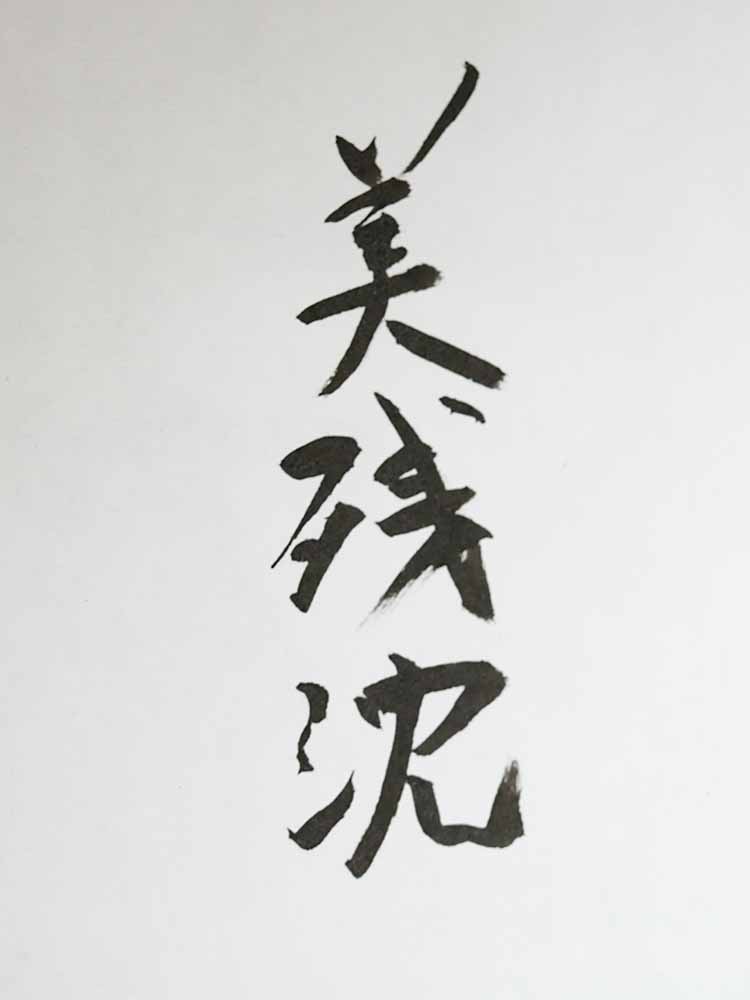 美残沈